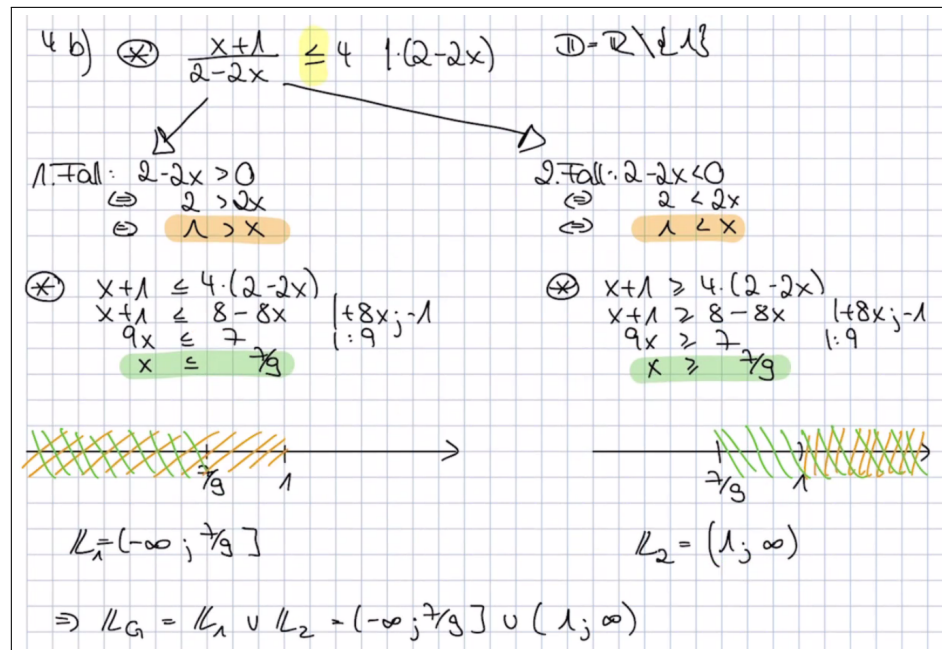 4 b) ⊛ (x+1)/(2-2x) ≤ 4 |·(2-2x) 𝔻=ℝ\{1}
1. Fall: 2-2x > 0
⇔ 2 > 2x
⇔ 1 > x
⊛ x+1 ≤ 4·(2-2x)
x+1 ≤ 8-8x |+8x; -1
9x ≤ 7 |:9
x ≤ 7/9
7/9 1
𝕃₁=(-∞; 7/9]
2. Fall: 2-2x < 0
⇔ 2 < 2x
⇔ 1 < x
⊛ x+1 ≥ 4·(2-2x)
x+1 ≥ 8-8x |+8x; -1
9x ≥ 7 |:9
x ≥ 7/9
7/9 1
𝕃₂ = (1; ∞)
⇒ 𝕃G = 𝕃₁ ∪ 𝕃₂ = (-∞; 7/9] ∪ (1; ∞)